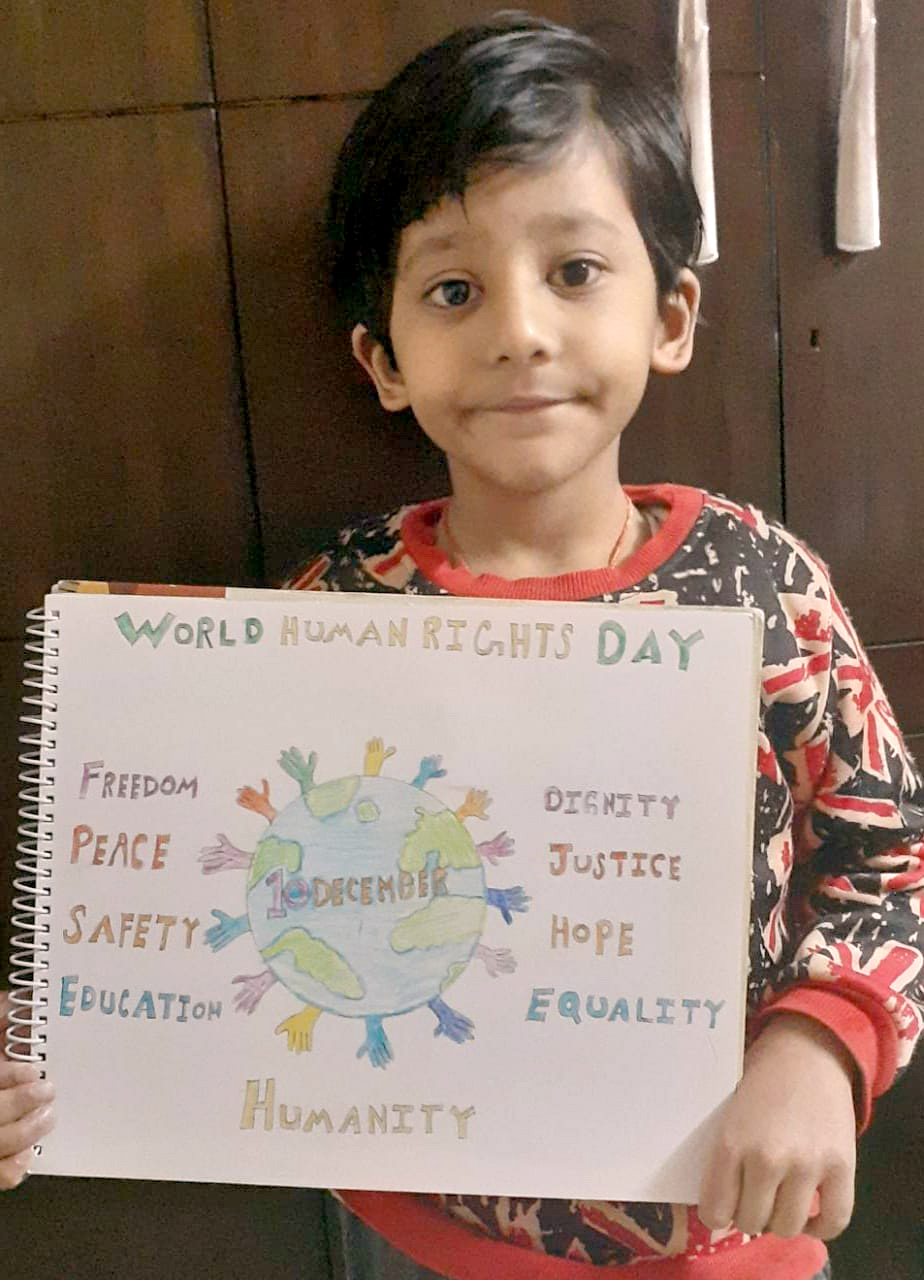 WORLD HUMAN RIGHTS DAY
FREEDOM
PEACE
SAFETY
EDUCATION
10 DECEMBER
DIGNITY
JUSTICE
HOPE
EQUALITY
HUMANITY